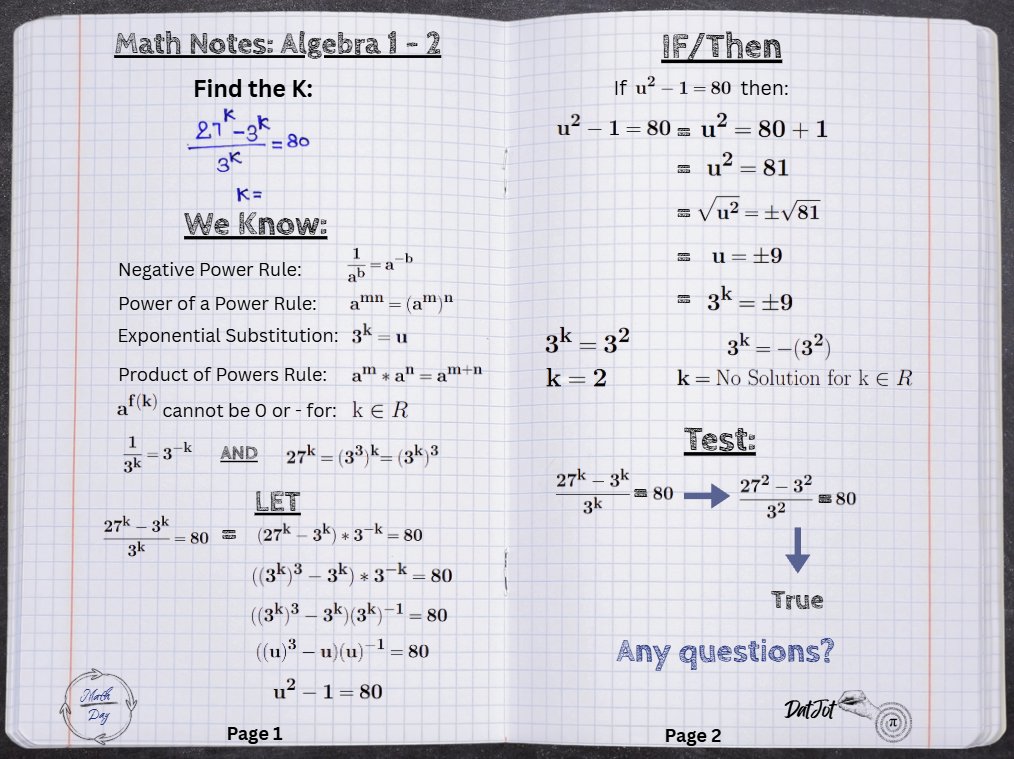 Math Notes: Algebra 1 - 2
Find the K:
27^k - 3^k / 3^k = 80
K =
We Know:
Negative Power Rule: 1/a^b = a^-b
Power of a Power Rule: a^mn = (a^m)^n
Exponential Substitution: 3^k = u
Product of Powers Rule: a^m * a^n = a^m+n
a^f(k) cannot be 0 or - for: k ∈ R
1/3^k = 3^-k AND 27^k = (3^3)^k = (3^k)^3
LET
27^k - 3^k / 3^k = 80 = (27^k - 3^k) * 3^-k = 80
((3^k)^3 - 3^k) * 3^-k = 80
((3^k)^3 - 3^k)(3^k)^-1 = 80
((u)^3 - u)(u)^-1 = 80
u^2 - 1 = 80
Math
Day
Page 1
IF/Then
If u^2 - 1 = 80 then:
u^2 - 1 = 80 = u^2 = 80 + 1
= u^2 = 81
= √u^2 = ±√81
= u = ±9
= 3^k = ±9
3^k = 3^2 3^k = -(3^2)
k = 2 k = No Solution for k ∈ R
Test:
27^k - 3^k / 3^k = 80 27^2 - 3^2 / 3^2 = 80
True
Any questions?
DatJot
π
Page 2